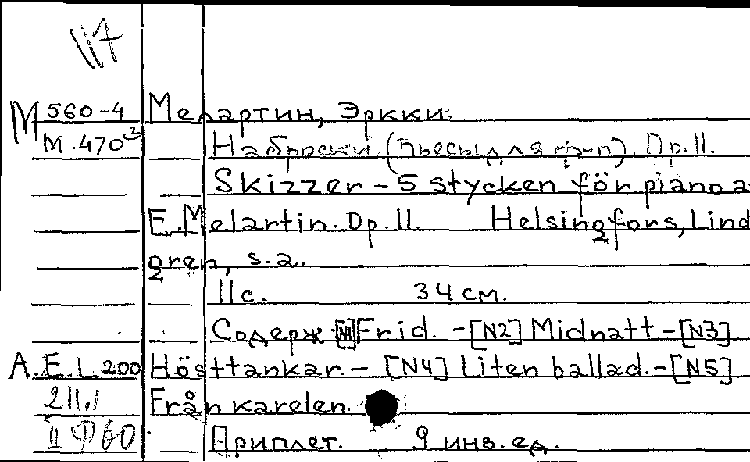 117
М 560-4 Мелартин, Эркки.
М.470² Наброски (Пьесы для ф-п). Op.11.
Skizzer - 5 stycken för piano a
E. Melartin. Op. 11. Helsingfors, Lind
gren, s.a.
11 с. 34 см.
Содерж: [N1] Frid. - [N2] Midnatt - [N3]
A.E.1.200 Hösttankar. - [N4] Liten ballad. - [N5]
211.1 Från karelen.
II Ф60 Приплет. 9 инв. ед.